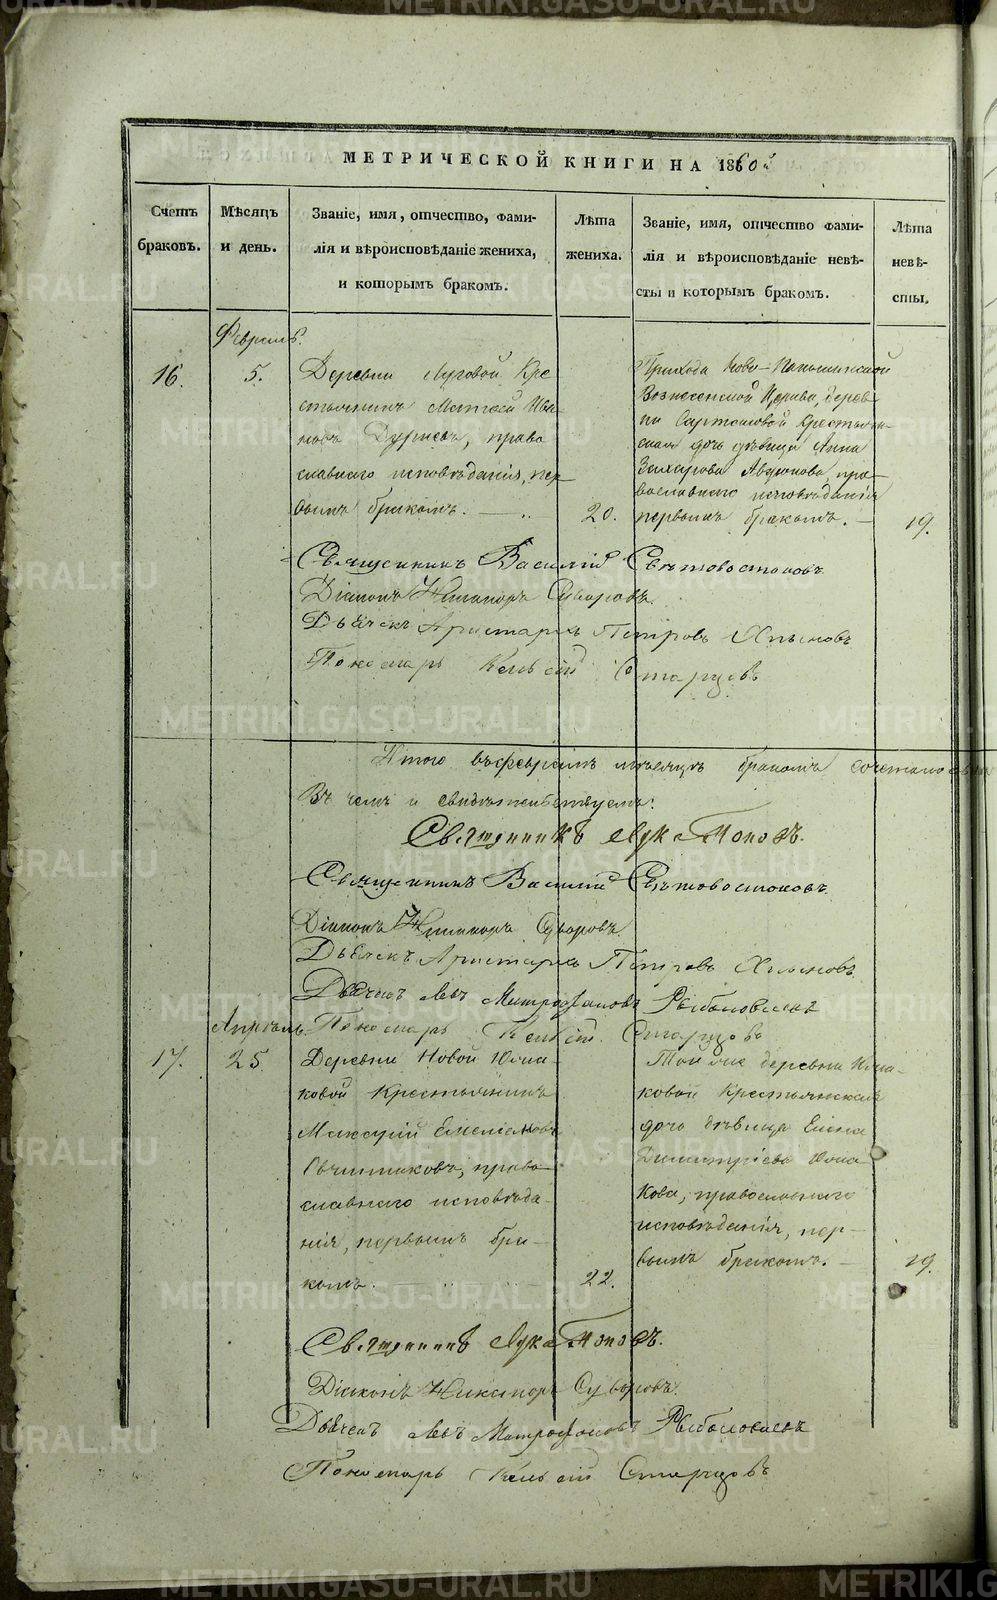 МЕТРИЧЕСКОЙ КНИГИ НА 1860й
Счетъ браковъ.
Мѣсяцъ и день.
Званіе, имя, отчество, фами-
лія и вѣроисповѣданіе жениха,
и которымъ бракомъ.
Лѣта жениха.
Званіе, имя, отчество фами-
лія и вѣроисповѣданіе невѣ-
сты и которымъ бракомъ.
Лѣта невѣ-
сты.
Февраль.
16.
5.
Деревни Луговой Кре
стьянинъ Матвей Ива
новъ Дурневъ, право
славнаго исповѣданія, пер
вымъ бракомъ.
20.
Прихода Ново-
Вознесенской Церкви, дерев
ни крестьян-
ская дочь дѣвица Анна
Захарова Авдюкова, пра-
вославнаго исповѣданія
первымъ бракомъ.
19.
Священникъ Василій Свѣтовостоковъ
Діаконъ Никаноръ Суворовъ.
Дьячекъ Аристархъ Петровъ Хлыновъ
Пономарь Старцовъ
Итого въ Февралѣ мѣсяцѣ бракомъ сочетано
Въ чемъ и свидѣтельствуемъ:
Священникъ Лука Поповъ.
Священникъ Василій Свѣтовостоковъ
Діаконъ Никаноръ Суворовъ
Дьячекъ Аристархъ Петровъ Хлыновъ
Дьячекъ Левъ Митрофановъ Рыболовлевъ
Апрѣль.
Пономарь Старцовъ
17.
25
Деревни Новой Юша
ковой Крестьянинъ
Емеліановъ
Овчинниковъ, право
славнаго исповѣда
нія, первымъ бра-
комъ.
22.
Той же деревни Юша
ковой Крестьянская
дочь дѣвица Елена
Димитріева Юша
кова, православнаго
исповѣданія, пер-
вымъ бракомъ.
19.
Священникъ Лука Поповъ.
Діаконъ Никаноръ Суворовъ.
Дьячекъ Левъ Митрофановъ Рыболовлевъ
Пономарь Старцовъ
METRIKI.GASO-URAL.RU